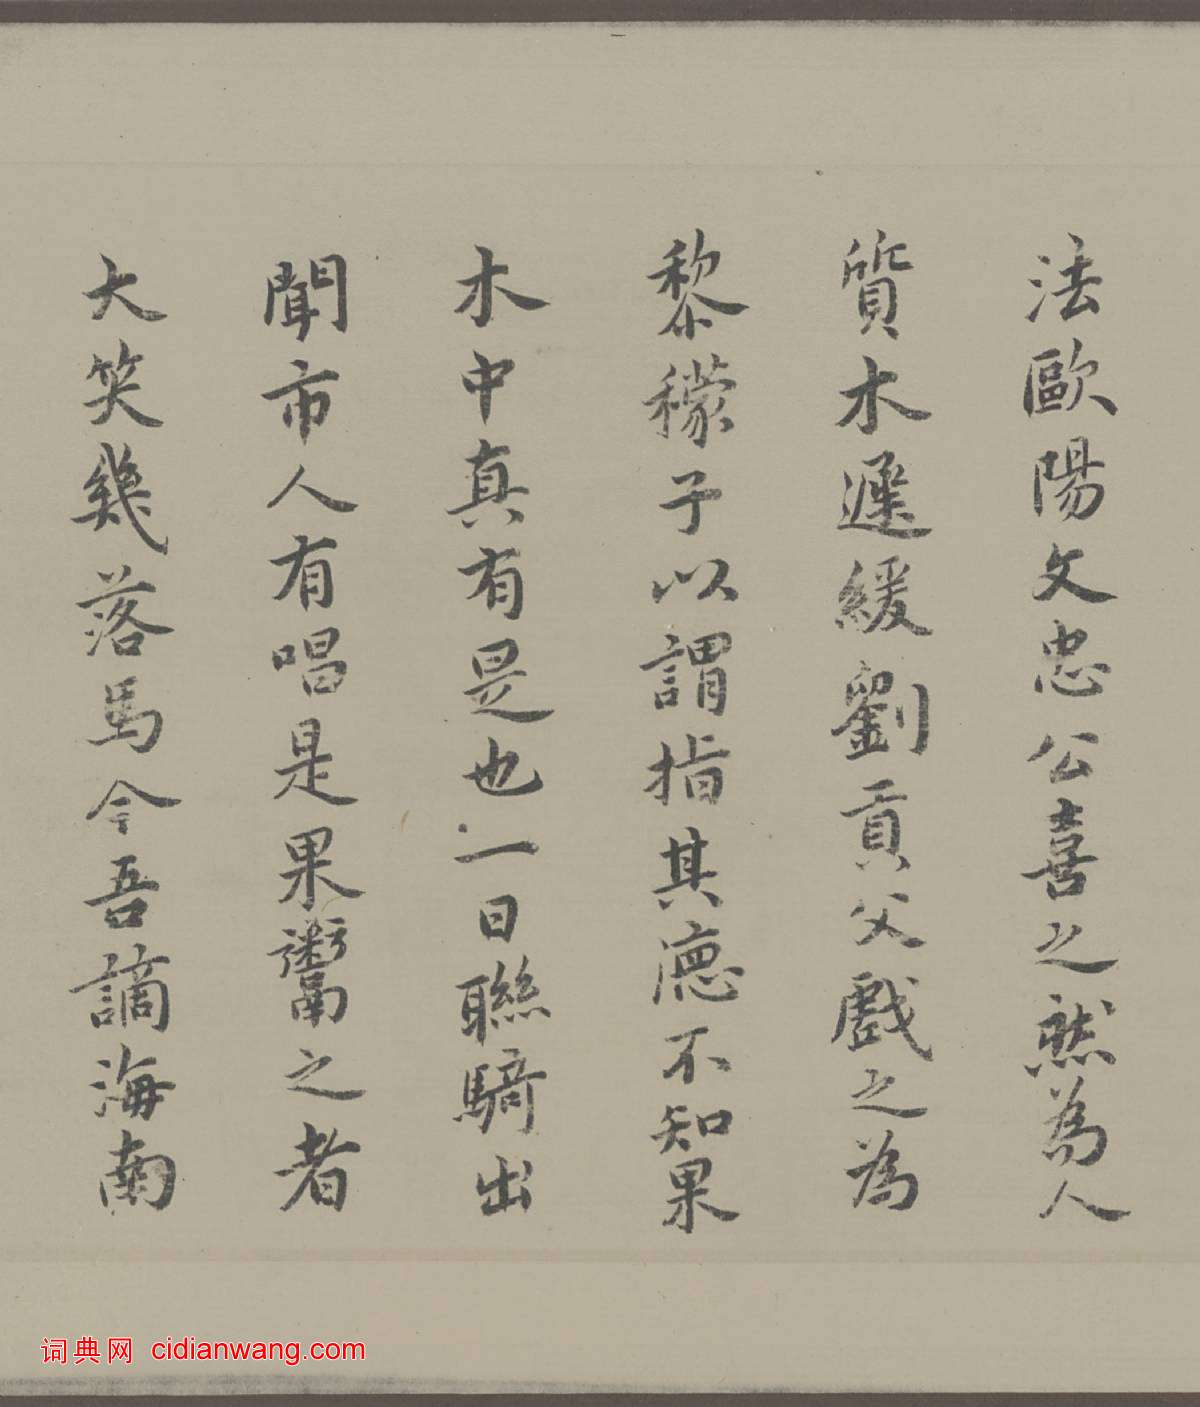 法歐陽文忠公喜之然為人
質木遲緩劉貢父戲之為
黎檬子以謂指其德不知果
木中真有是也一日聯騎出
聞市人有唱是果鬻之者
大笑幾落馬今吾謫海南
词典网 cidianwang.com